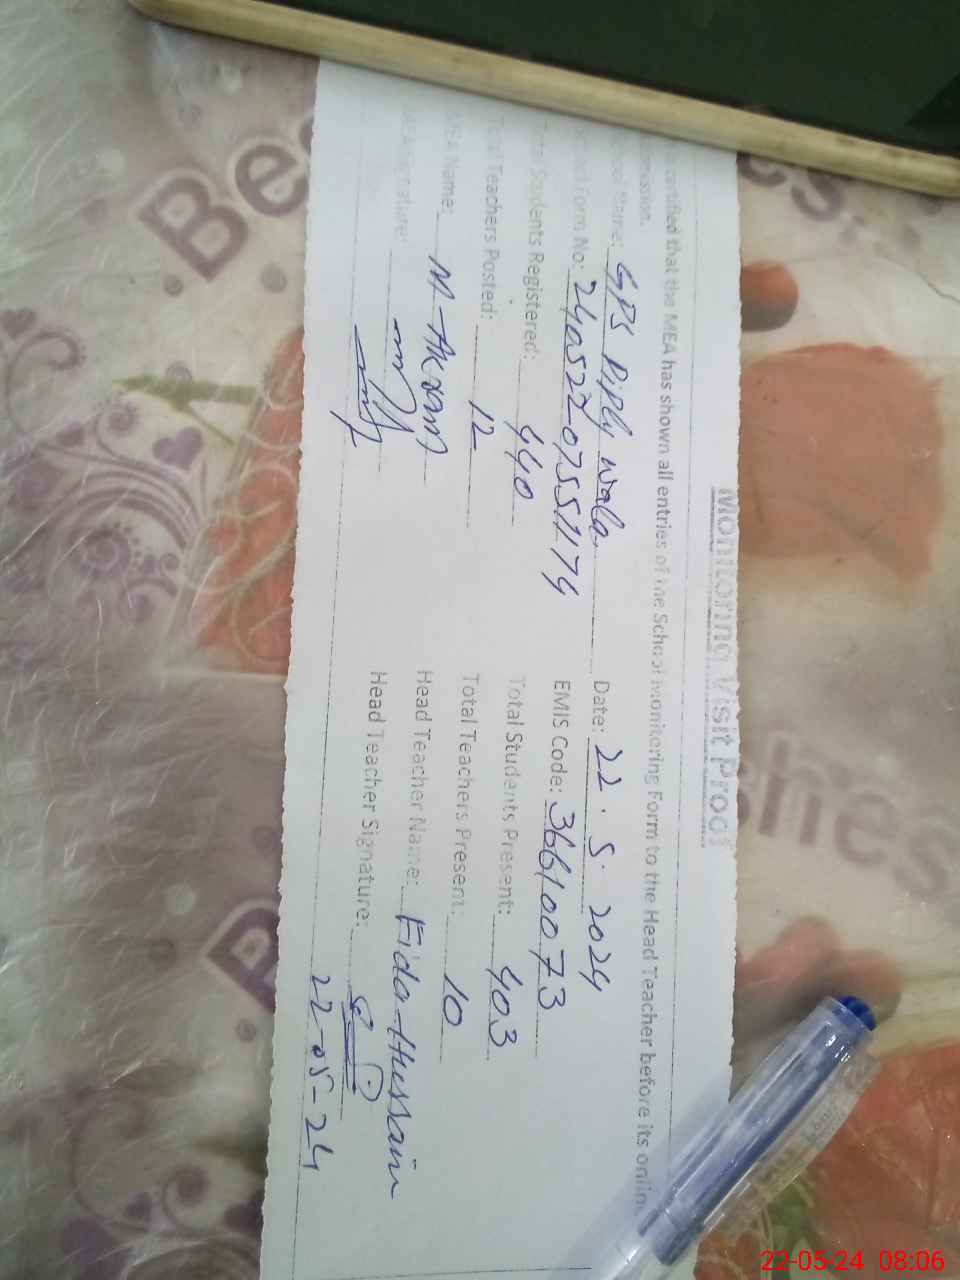 Monitoring Visit Proof
certified that the MEA has shown all entries of the School Monitoring Form to the Head Teacher before its online
Name: GPS Piply wala Date: 22.5.2024
Form No: 24052207551174 EMIS Code: 36610073
Total Students Registered: 440 Total Students Present: 403
Total Teachers Posted: 12 Total Teachers Present: 10
MEA Name: M-Akram Head Teacher Name: Fida Hussain
MEA Signature: Head Teacher Signature:
22-05-24
22-05-24 08:06